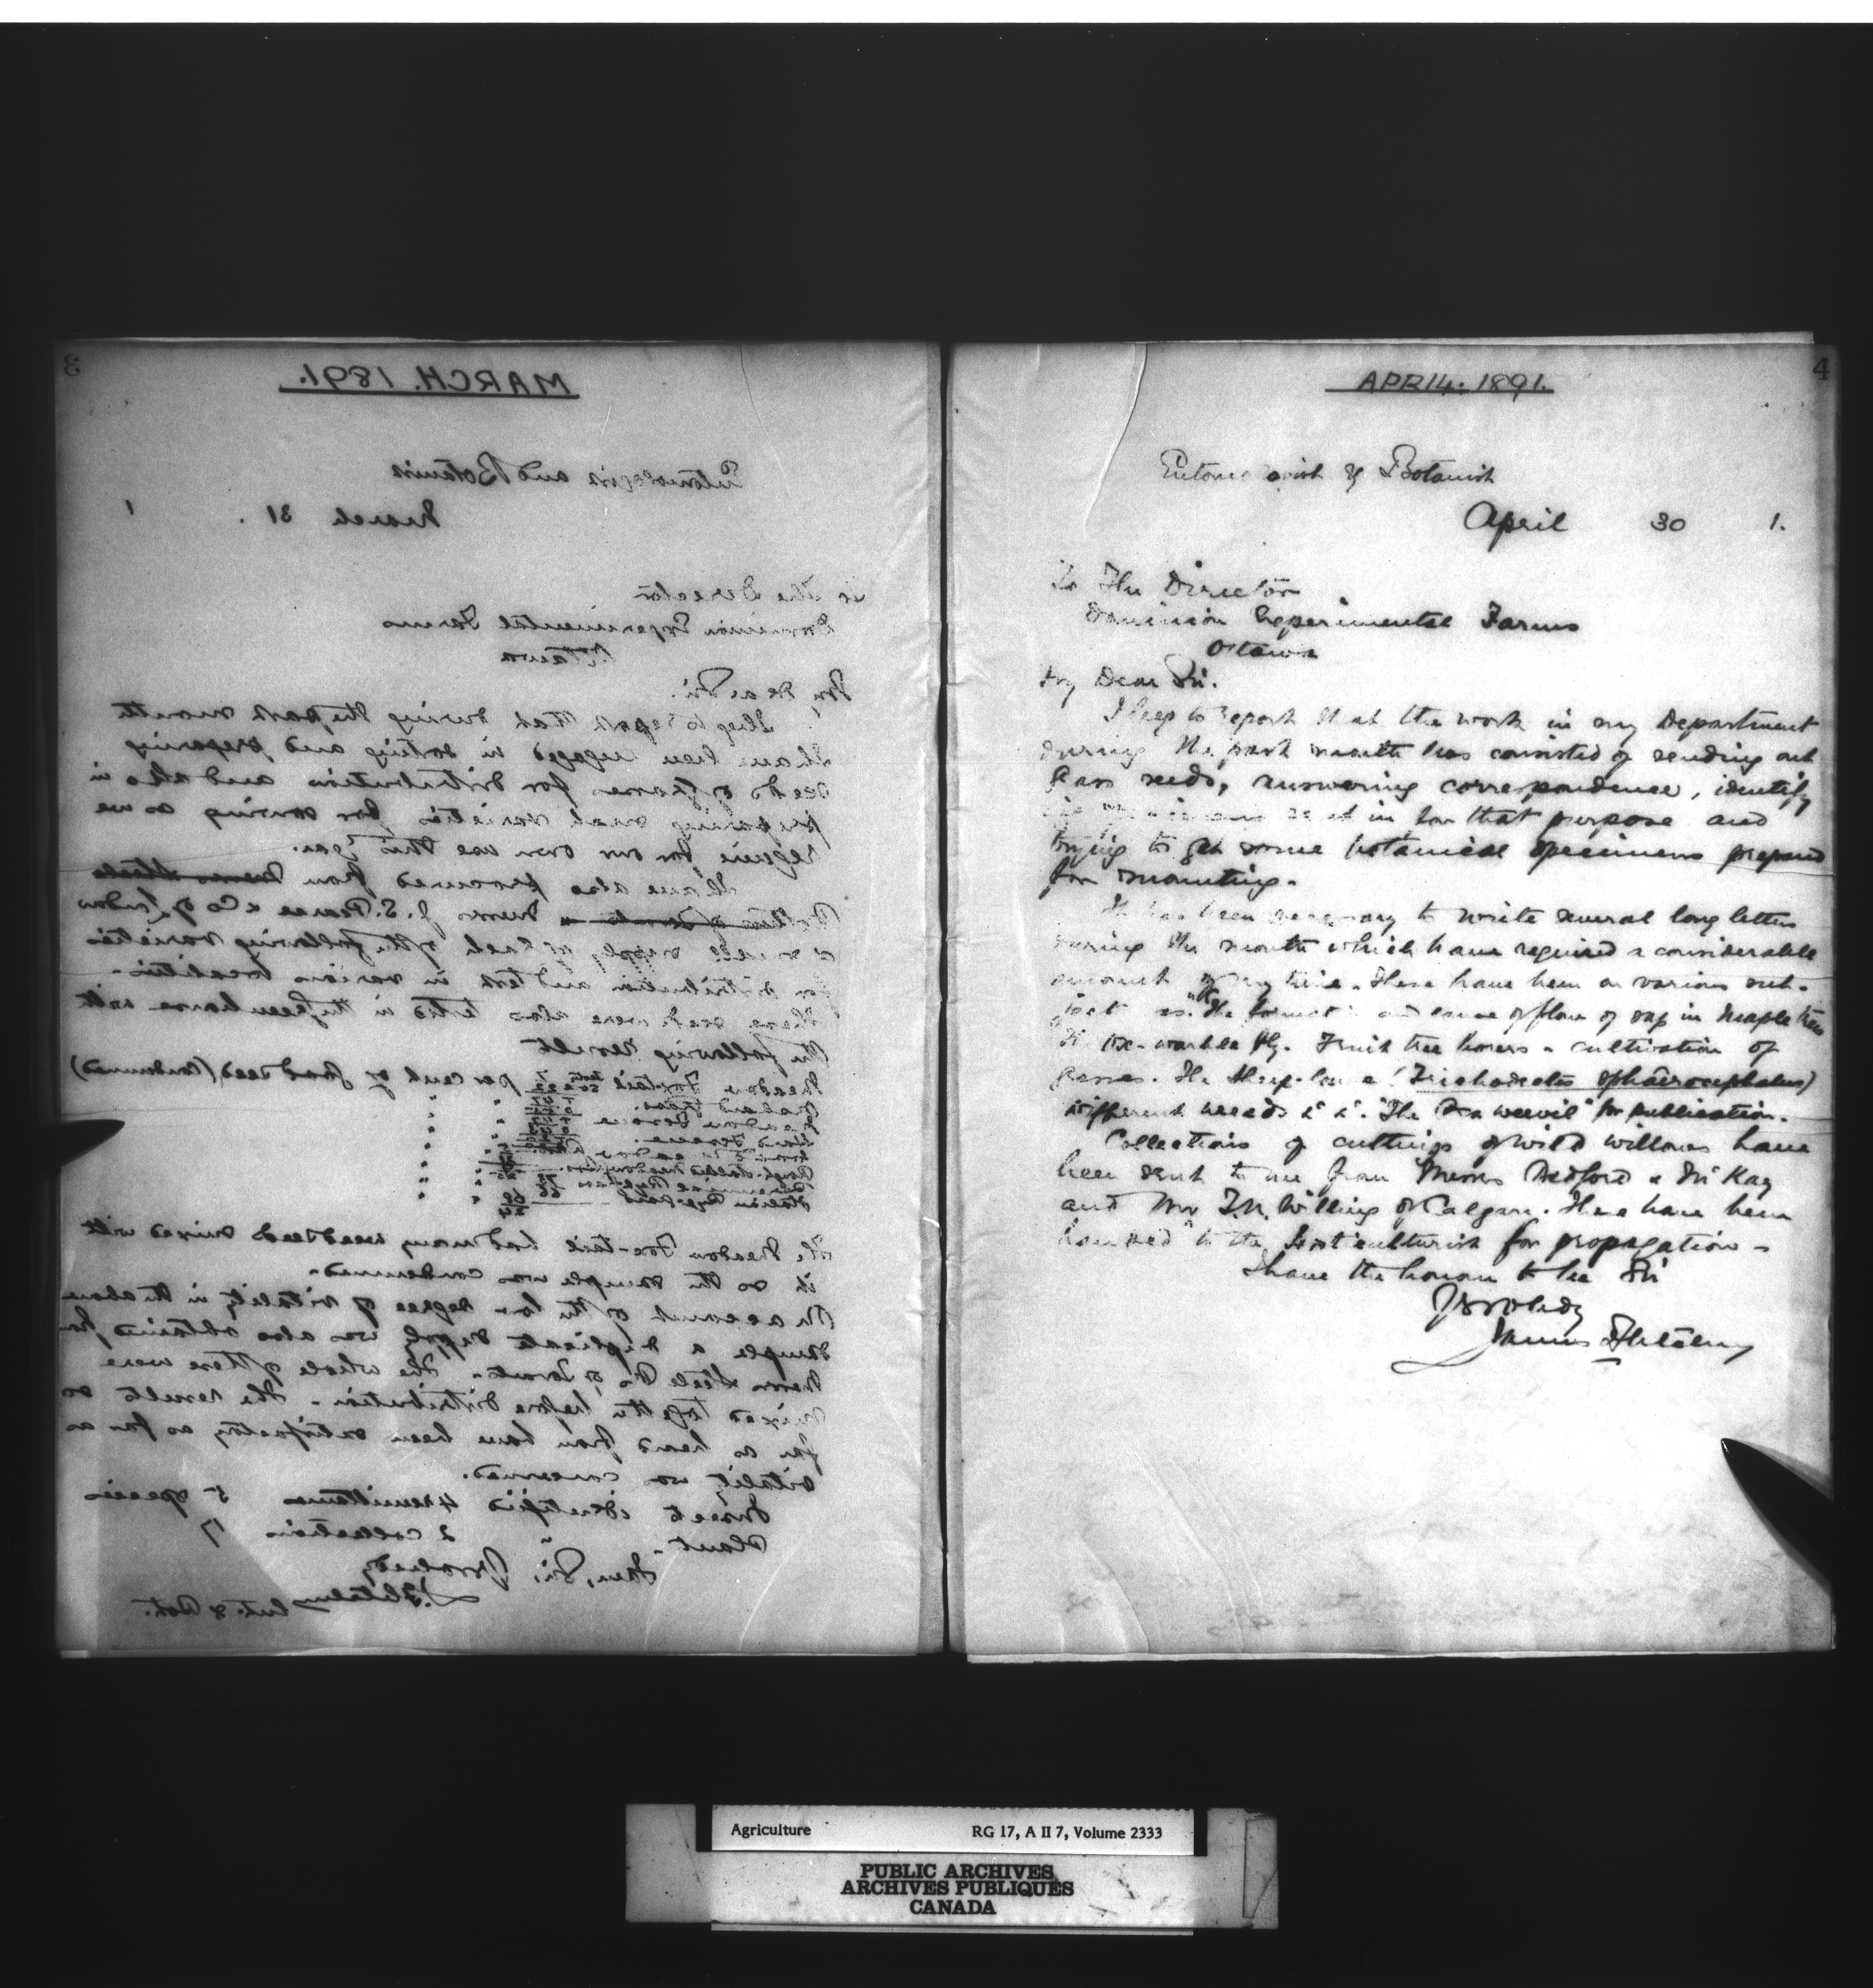 3
MARCH. 1891.
Entomologist and Botanist
March 31 . 1
To The Director
Dominion Experimental Farms
Ottawa
My Dear Sir.
I beg to report that during the past month
I have been engaged in sorting and preparing
seeds of grasses for distribution and also in
preparing such varieties for sowing as we
require for our own use this year.
I have also procured from Messrs Steele
Messrs J. S. Pearce & Co of London
a small supply of each of the following varieties
for distribution and test in various localities.
These seeds were also tested in the greenhouse with
the following result
Meadow Fox-tail per cent of good seed (condemned)
Orchard Grass
Meadow Fescue
Hard Fescue
Rough-stalked Meadow Grass
Perennial Rye Grass
Italian Rye Grass
The Meadow Fox-tail had many weed seeds mixed with
it so the sample was condemned.
On account of the low degree of vitality in the above
sample a duplicate supply was also obtained from
Messrs Steele Bros of Toronto. The whole of these were
mixed together before distribution. The results so
far as heard from have been satisfactory as far as
vitality was concerned.
Insects identified 4 remittances 5 species
Plants " 2 collections 17
I am, Sir, Yrs obedtly
J. Fletcher Ent. & Bot.
4
APRIL. 1891.
Entomologist & Botanist
April 30 1.
To The Director
Dominion Experimental Farms
Ottawa
My Dear Sir.
I beg to report that the work in my Department
during the past month has consisted of sending out
Grass seeds, answering correspondence, identify
ing specimens sent in for that purpose and
trying to get some botanical specimens prepared
for mounting.
It has been necessary to write several long letters
during the month which have required a considerable
amount of my time. These have been on various sub-
jects as "The formation and cause of flow of sap in Maple trees
The Ox-warble fly. Fruit tree borers - cultivation of
grasses. The Sheep-louse (Trichodectes sphaerocephalus)
different weeds &c &c. "The Pea weevil" for publication.
Collections of cuttings of wild willows have
been sent to me from Messrs Bedford & McKay
and Mr T.N. Willing of Calgary. These have been
handed to the Horticulturist for propagation -
I have the honour to be Sir
Yrs obedtly
James Fletcher
Agriculture RG 17, A II 7, Volume 2333
PUBLIC ARCHIVES
ARCHIVES PUBLIQUES
CANADA